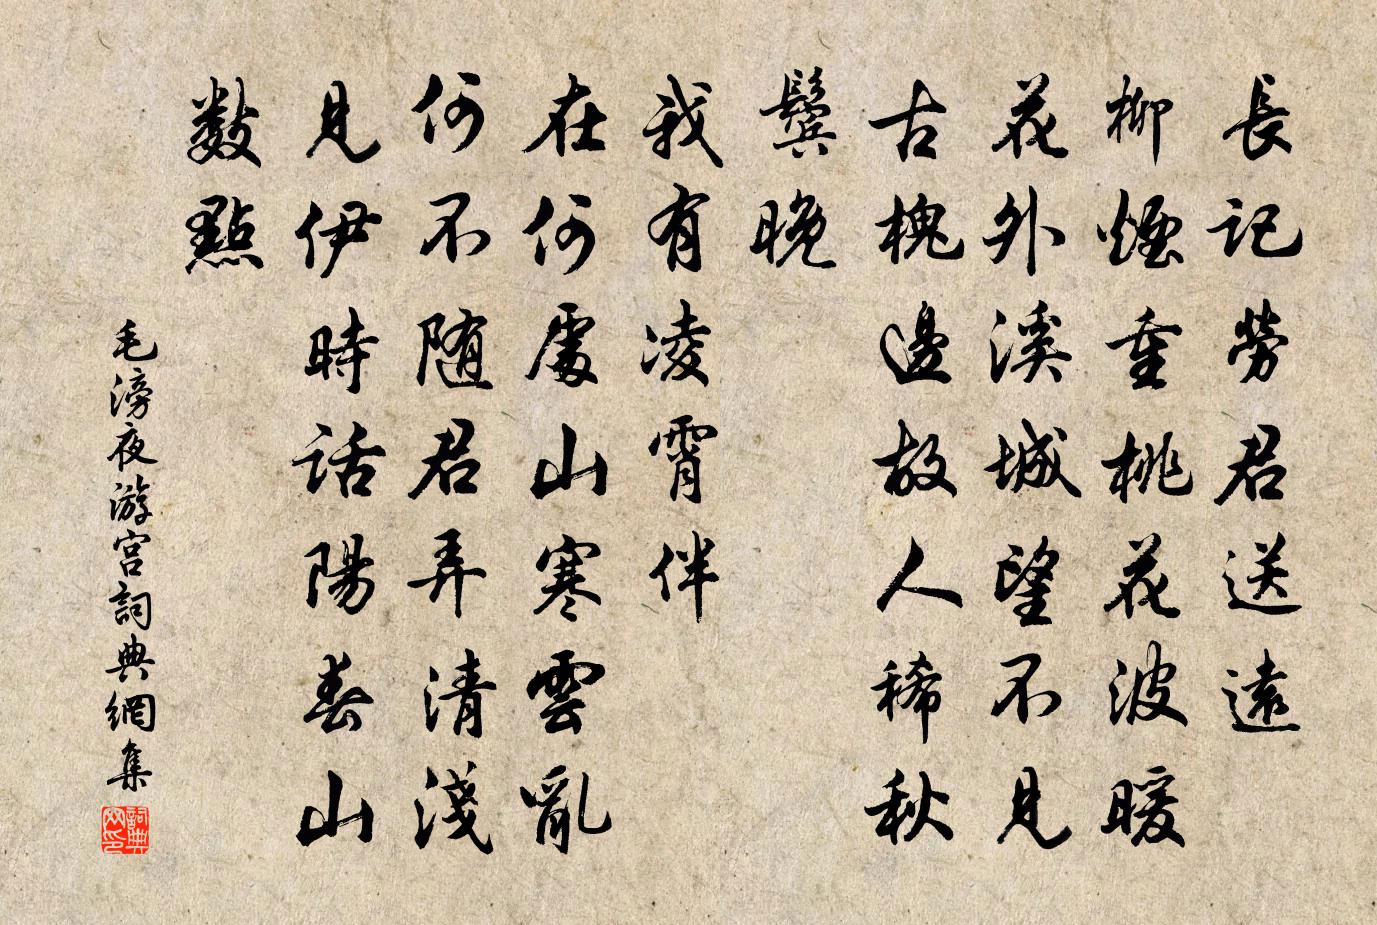 長記勞君送遠
柳煙重桃花波暖
花外溪城望不見
古槐邊故人稀秋
鬢晚
我有凌霄伴
在何處山寒雲亂
何不随君弄清淺
見伊時話陽春山
數點
毛滂夜游宫詞典網集
詞典网印